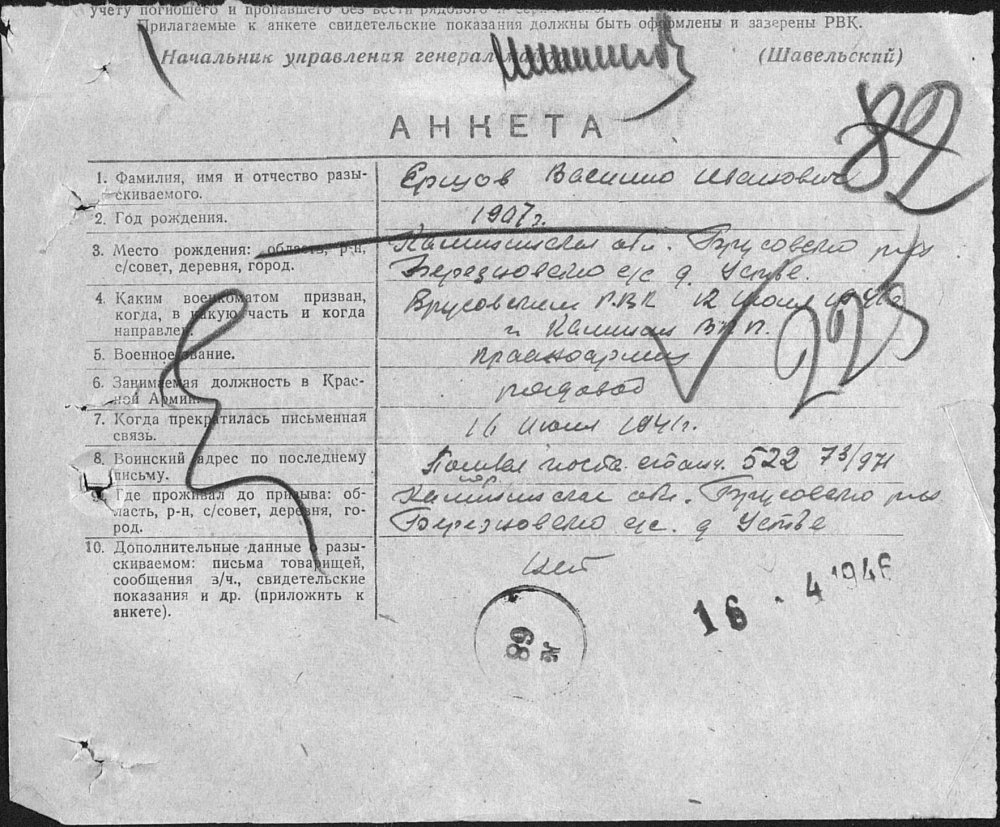 учету погибшего и пропавшего без вести рядового и
Прилагаемые к анкете свидетельские показания должны быть оформлены и заверены РВК.
Начальник управления генерал-майор (Шавельский)
82
АНКЕТА
1. Фамилия, имя и отчество разы-
скиваемого.
Ершов Василий Иванович
2. Год рождения.
1907 г.
3. Место рождения: область, р-н,
с/совет, деревня, город.
Калининская обл. Брусовского р-на
Березновского с/с д. Устье.
4. Каким военкоматом призван,
когда, в какую часть и когда
направлен.
Брусовским РВК 12 июля 194
г. Калинин ВПП.
223
5. Военное звание.
красноармеец
6. Занимаемая должность в Крас-
ной Армии.
рядовой
7. Когда прекратилась письменная
связь.
16 июля 1941 г.
8. Воинский адрес по последнему
письму.
522 73/971
9. Где проживал до призыва: об-
ласть, р-н, с/совет, деревня, го-
род.
Калининская обл. Брусовского р-на
Березновского с/с. д Устье
10. Дополнительные данные о разы-
скиваемом: письма товарищей,
сообщения в/ч., свидетельские
показания и др. (приложить к
анкете).
Нет
16. 4 1946
89